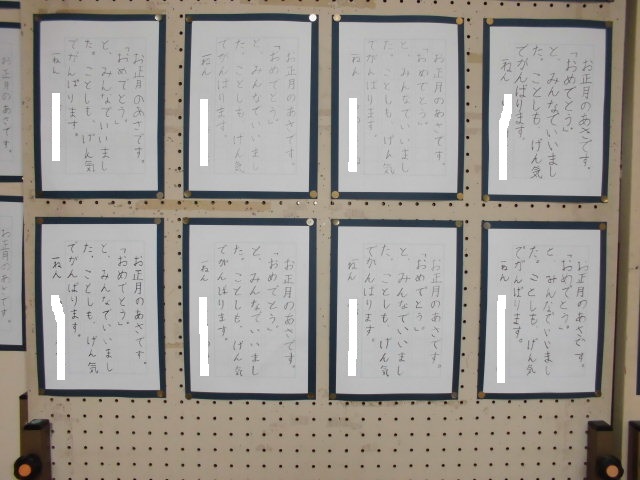 お正月のあさです。
「おめでとう」
と、みんなでいいまし
た。ことしも、げん気
でがんばります。
一ねん
お正月のあさです。
「おめでとう」
と、みんなでいいまし
た。ことしも、げん気
でがんばります。
一ねん
お正月のあさです。
「おめでとう」
と、みんなでいいまし
た。ことしも、げん気
でがんばります。
一ねん
お正月のあさです。
「おめでとう」
と、みんなでいいまし
た。ことしも、げん気
でがんばります。
一ねん
お正月のあさです。
お正月のあさです。
「おめでとう」
と、みんなでいいまし
た。ことしも、げん気
でがんばります。
一ねん
お正月のあさです。
「おめでとう」
と、みんなでいいまし
た。ことしも、げん気
でがんばります。
一ねん
お正月のあさです。
「おめでとう」
と、みんなでいいまし
た。ことしも、げん気
でがんばります。
一ねん
お正月のあさです。
「おめでとう」
と、みんなでいいまし
た。ことしも、げん気
でがんばります。
一ねん
お正月のあさです。